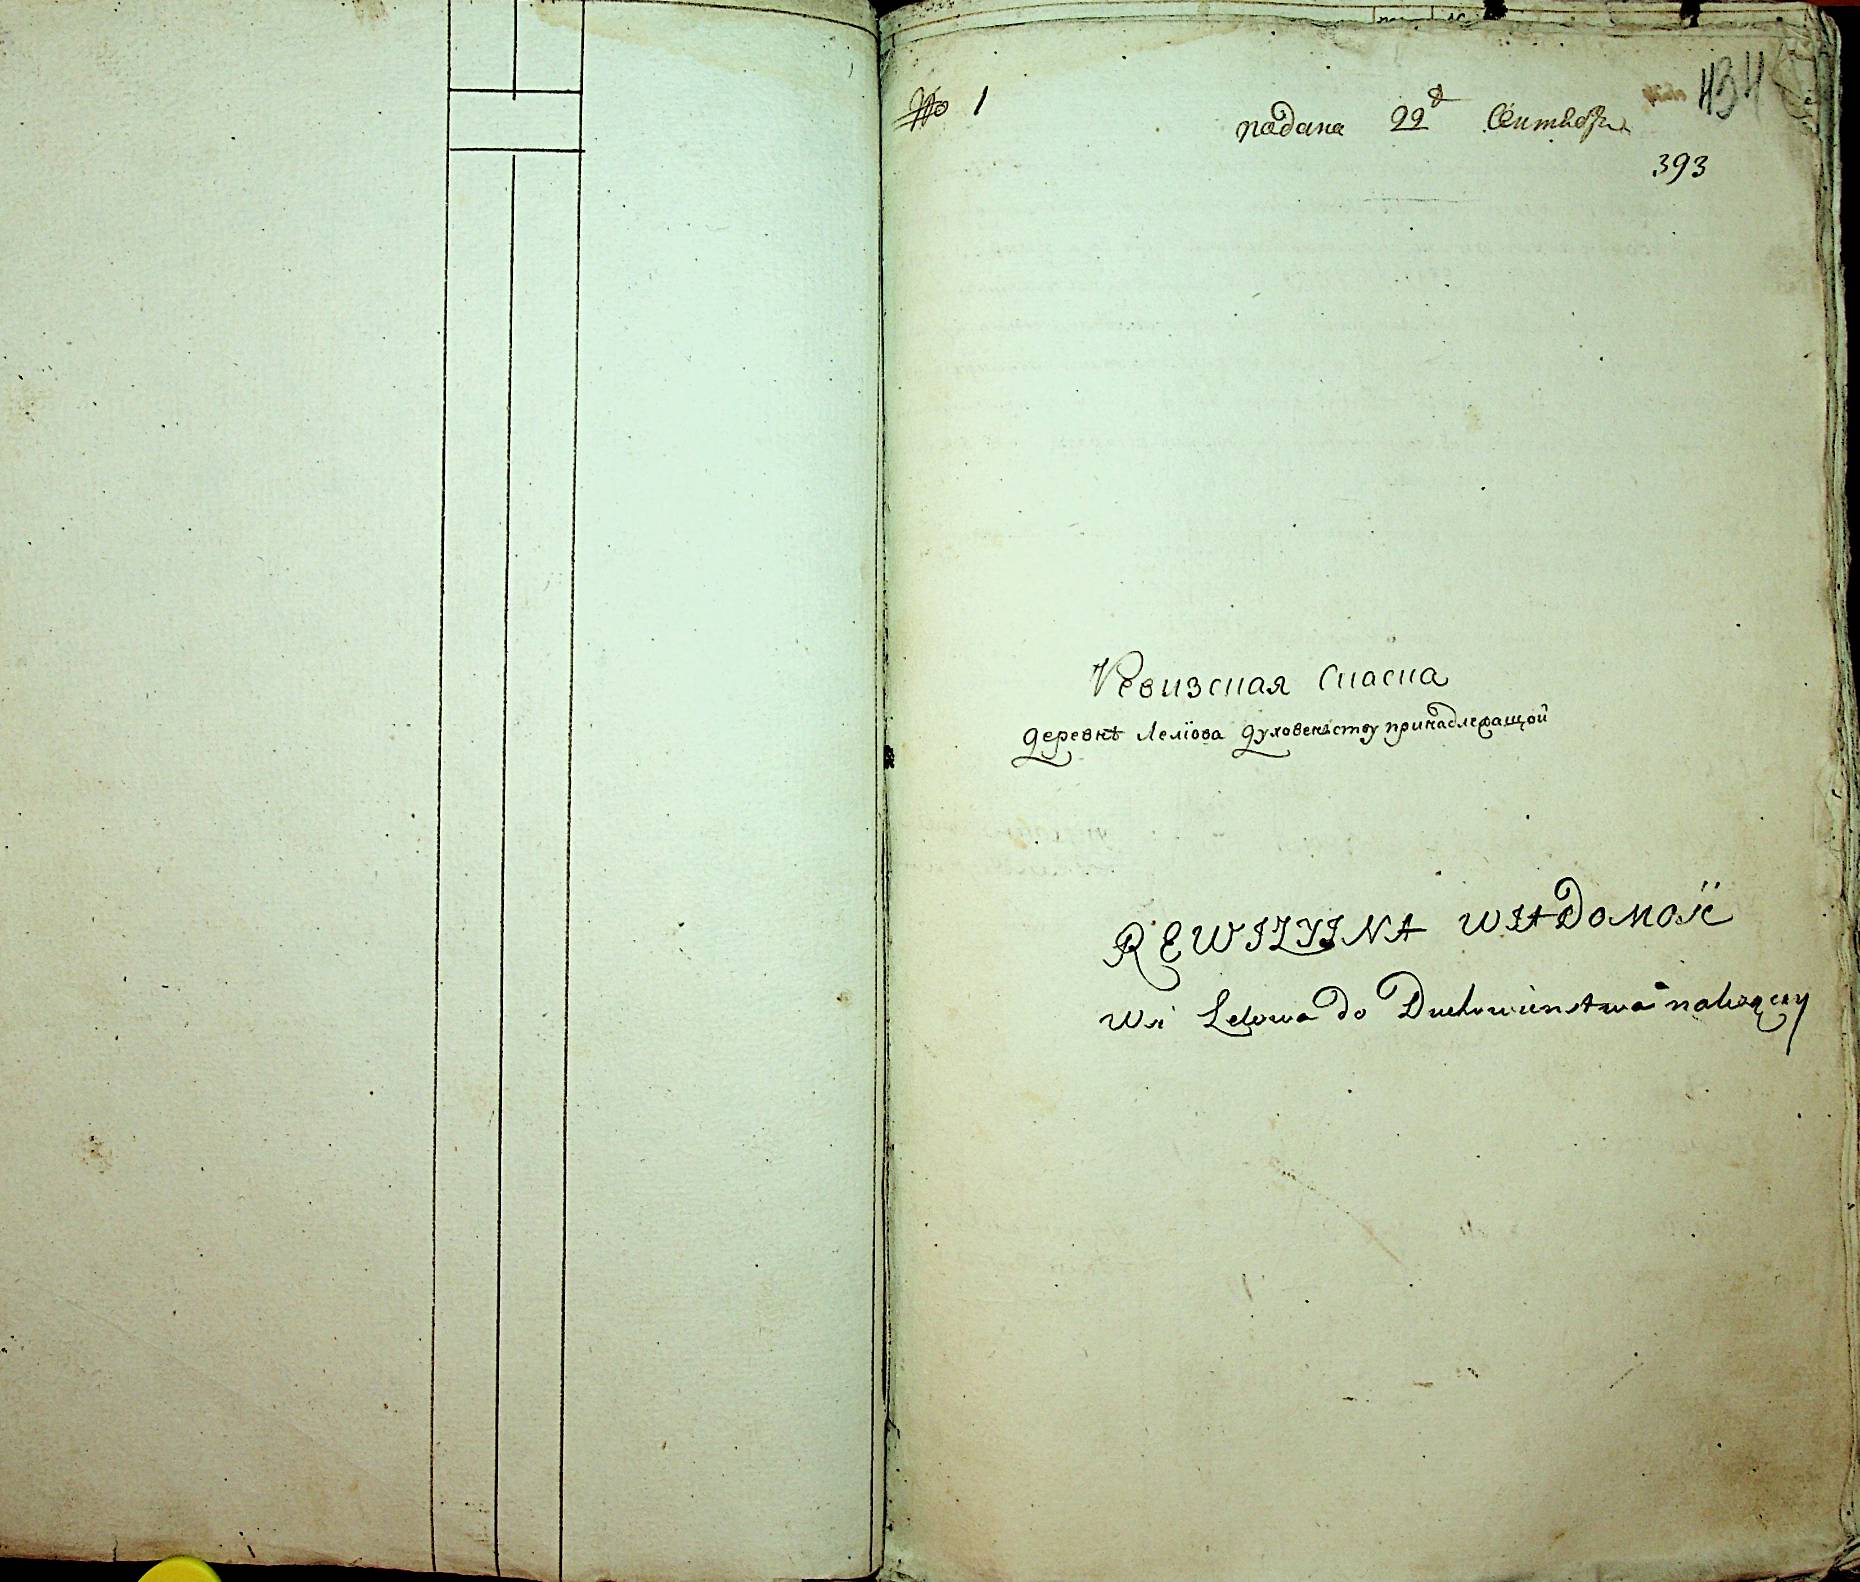 № 1
подана 22д Сентября
434
393
Ревизская Скаска
деревнѣ Леліова духовенъству принадлежащой
REWIZYINA WIADOMOść
Wsi Lelowa do Duchowienstwa należącey